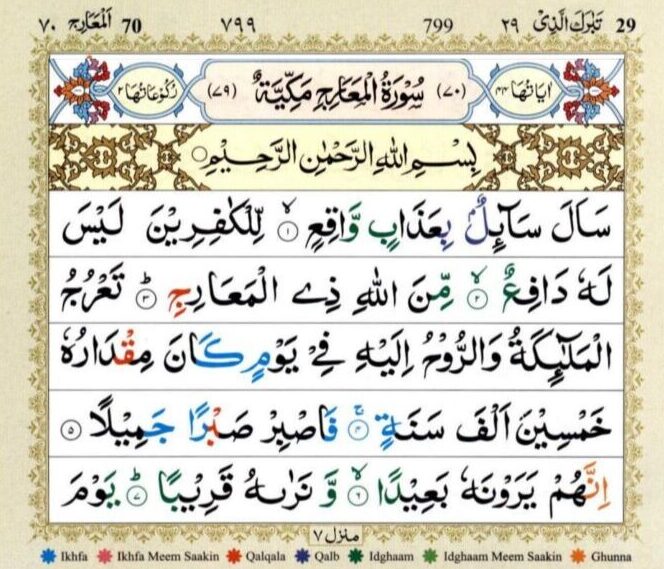 29 تَبٰرَكَ الَّذِیْ ٢٩ 799 ٧٩٩ 70 اَلْمَعَارِج ٧٠
اٰيَاتُهَا ٤٤ (٧٠) سُوْرَةُ الْمَعَارِجِ مَكِّيَّةٌ (٧٩) رُكُوْعَاتُهَا ٢
بِسْمِ اللّٰهِ الرَّحْمٰنِ الرَّحِيْمِ
سَاَلَ سَآئِلٌۢ بِعَذَابٍ وَّاقِعٍ ۙ‏ ١ لِّلْكٰفِرِيْنَ لَيْسَ
لَهٗ دَافِعٌ ۙ‏ ٢ مِّنَ اللّٰهِ ذِى الْمَعَارِجِ ؕ‏ ٣ تَعْرُجُ
الْمَلٰٓئِكَةُ وَالرُّوْحُ اِلَيْهِ فِىْ يَوْمٍ كَانَ مِقْدَارُهٗ
خَمْسِيْنَ اَلْفَ سَنَةٍ ۚ‏ ٤ فَاصْبِرْ صَبْرًا جَمِيْلًا ٥
اِنَّهُمْ يَرَوْنَهٗ بَعِيْدًا ۙ‏ ٦ وَّ نَرٰىهُ قَرِيْبًا ؕ‏ ٧ يَوْمَ
منزل ٧
Ikhfa Ikhfa Meem Saakin Qalqala Qalb Idghaam Idghaam Meem Saakin Ghunna